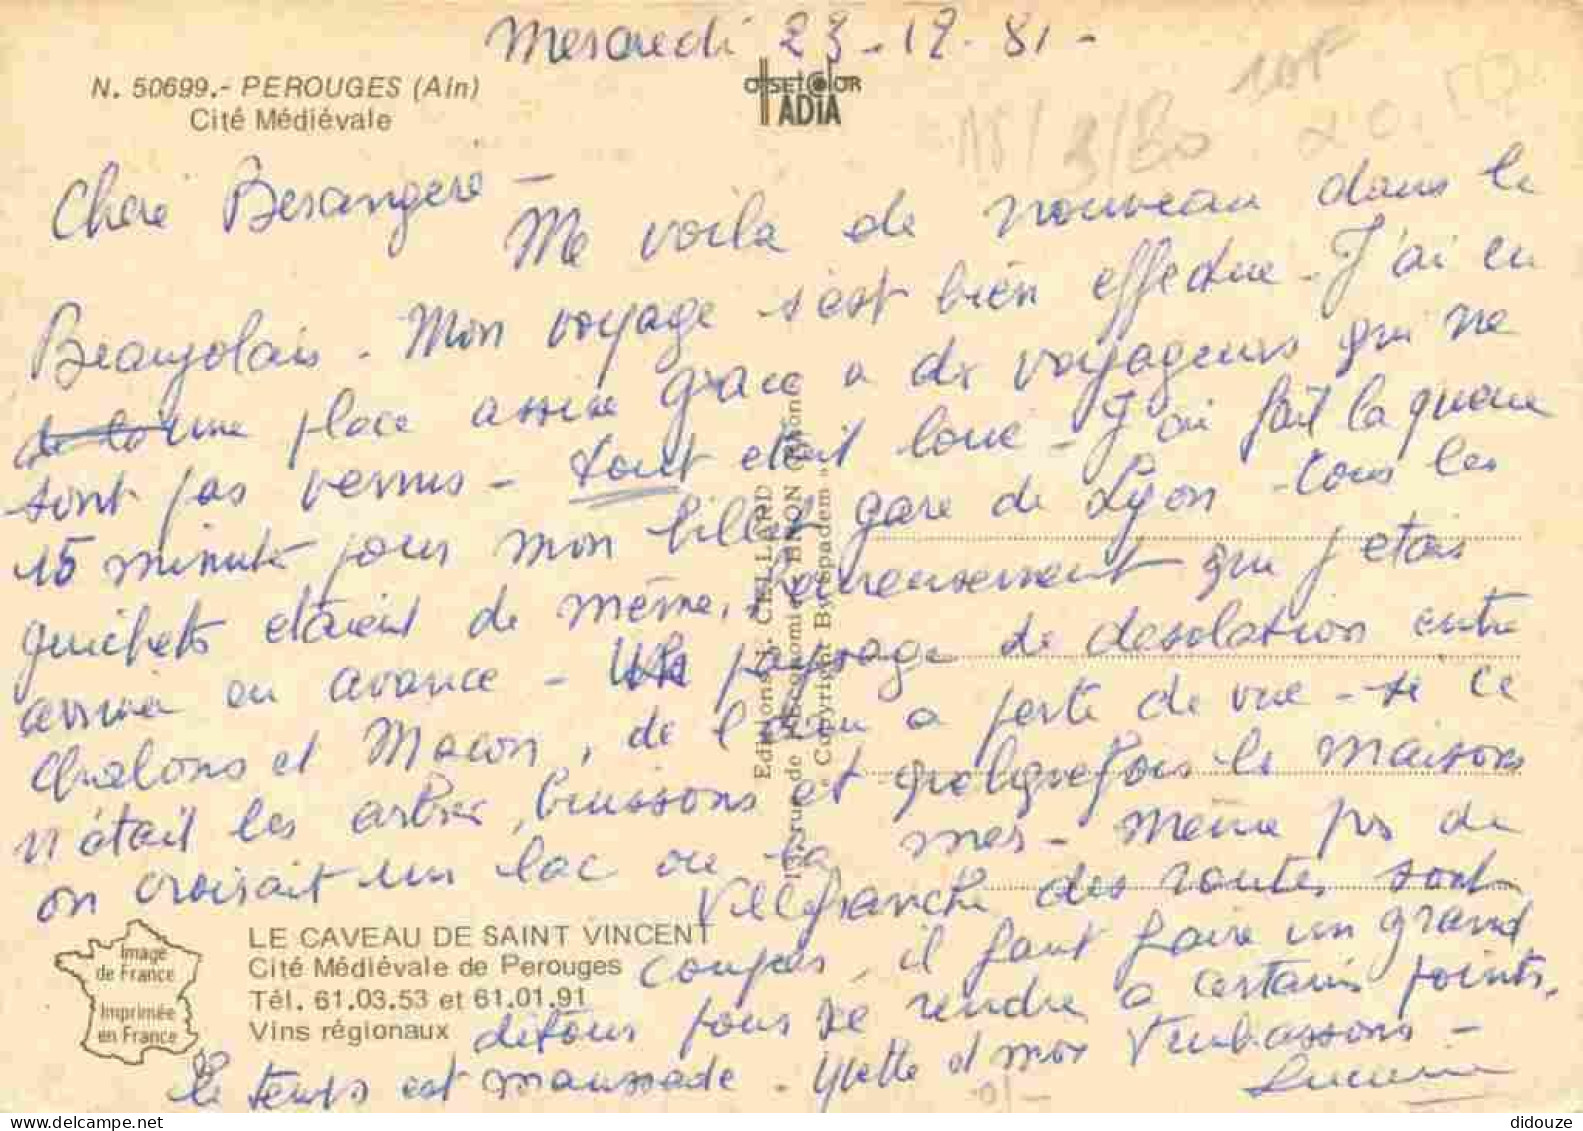 Mercredi 23-12-81-
N. 50699.- PEROUGES (Ain)
Cité Médiévale
OFFSETCOLOR
IADIA
Chere Berangere -
Me voila de nouveau dans le
Beaujolais - Mon voyage s'est bien effectue - J'ai eu
une place assise grace a dix voyageurs qui ne
sont pas venus - tout etait loue - J'ai fait la queue
15 minutes pour mon billet gare de Lyon - tous les
guichets etaient de même, heureusement que j'etais
arrivée en avance - un paysage de desolation entre
Chalons et Macon, de l'eau a perte de vue - si ce
n'était les arbres, buissons et quelquefois les maisons
on croirait un lac ou la mer - même près de
Villefranche des routes sont
coupées, il faut faire un grand
detour pour se rendre a certains points.
Le temps est maussade - Yvette et moi t'embrassons -
Lucienne
Editions J. CELLARD
rue de BRON (Rhône)
« Copyright By Spadem »
Image
de France
Imprimée
en France
LE CAVEAU DE SAINT VINCENT
Cité Médiévale de Perouges
Tél. 61.03.53 et 61.01.91
Vins régionaux
delcampe.net
didouze